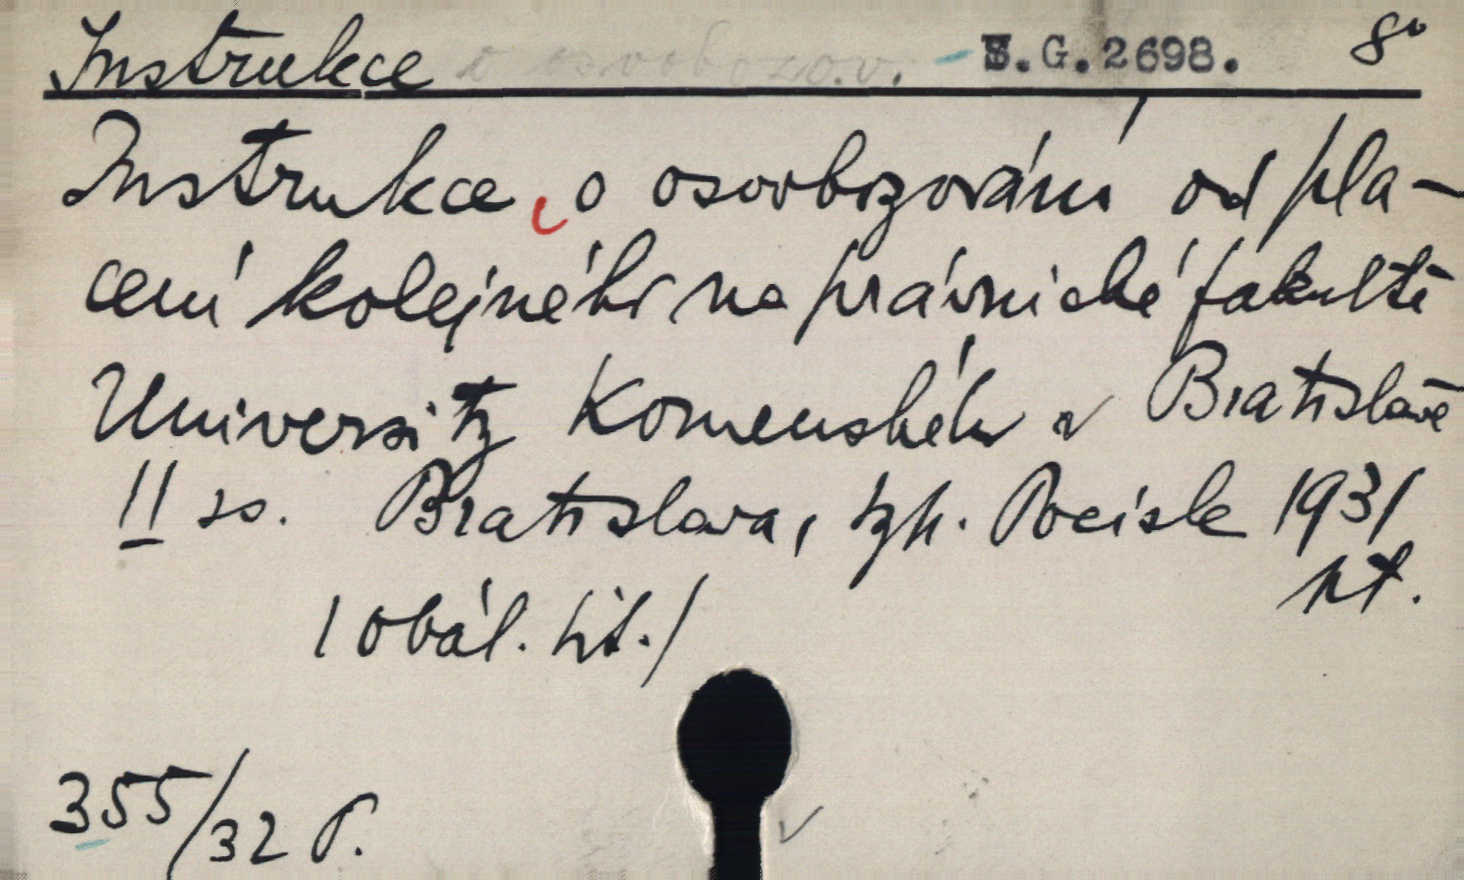 Instrukce o osvobozov. - S.G.2698. 8°
Instrukce o osvobozování od pla-
cení kolejného na právnické fakultě
University Komenského v Bratislavě
11 ss. Bratislava, typ. Pocisk 1931
nt.
/obál. tit./
355/32 P.